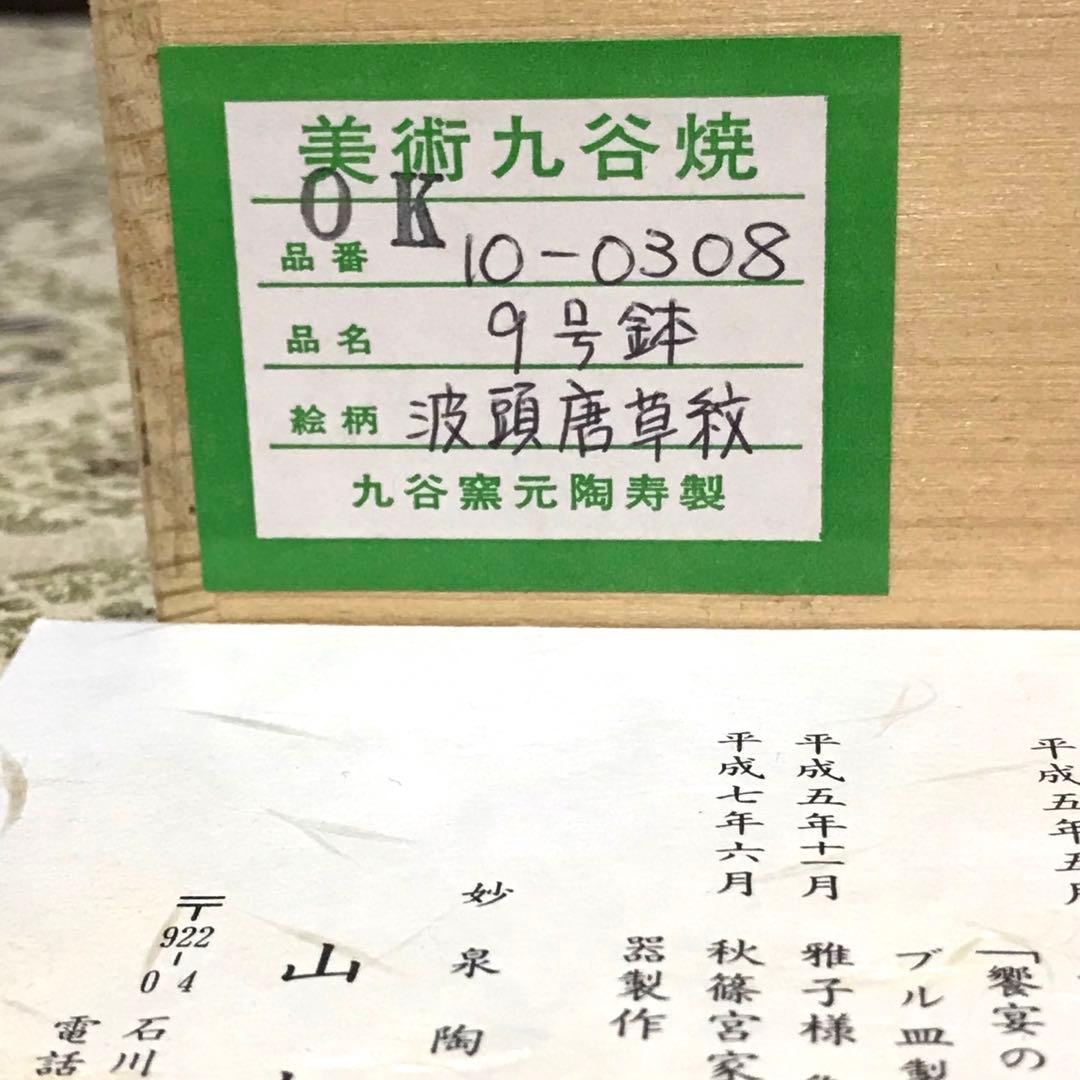 美術九谷焼
OK
品番 10-0308
品名 9号鉢
絵柄 波頭唐草紋
九谷窯元陶寿製
平成五年五月
「饗宴の
ブル皿製
平成五年十一月 雅子様
平成七年六月 秋篠宮家
器製作
妙泉陶
山
〒922-04
石川
電話